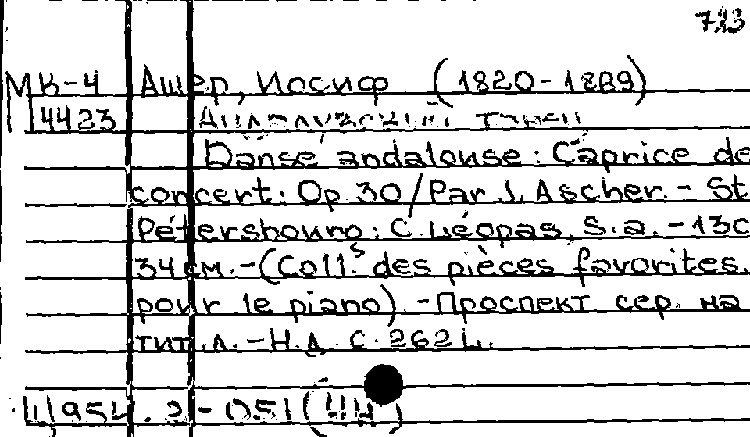 733
МК-4 Ашер, Иосиф (1820-1889)
4423 Андалузский танец
Danse andalouse: Caprice de
concert: Op. 30/Par J. Ascher. - St
Pétersbourg: C. Léopas, S.a. - 13с
34 см. - (Coll.s des pièces favorites.
pour le piano). - Проспект сер. на
тит. л. - Н.д. С. 262 L.
954. 2 - 051 (ЧН)